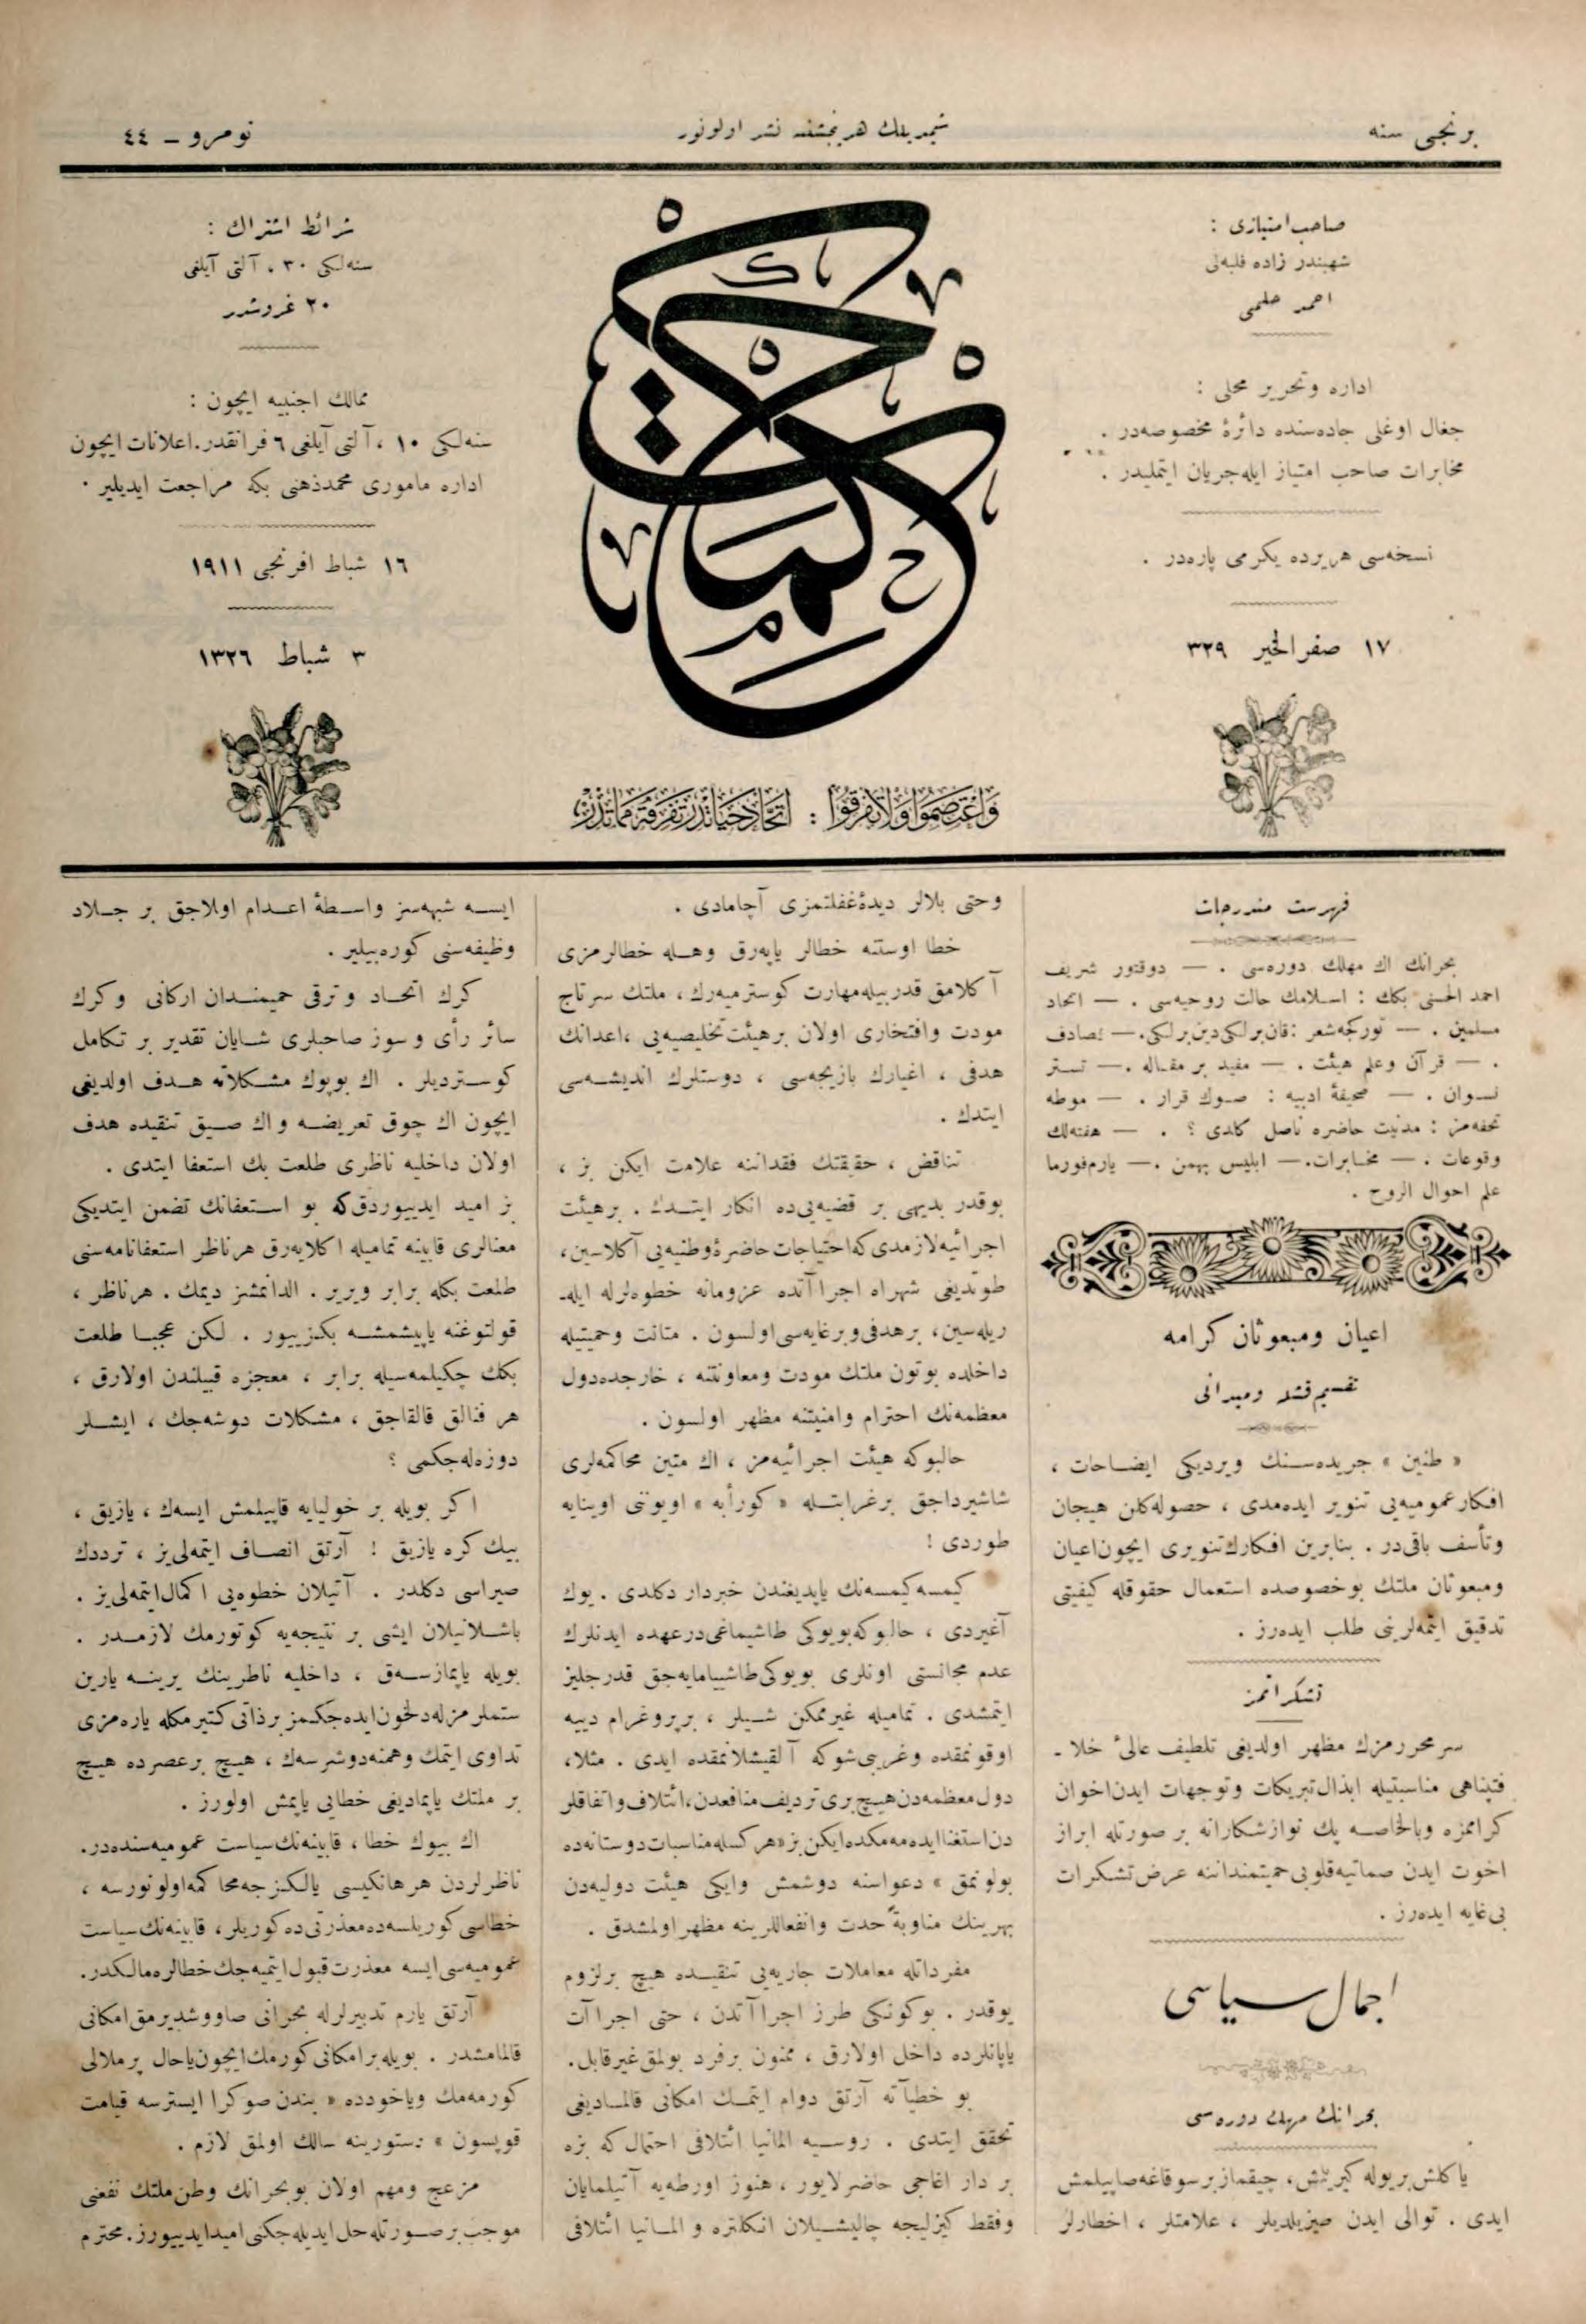 برنجی سنه
شیمدیلك هر پنجشنبه نشر اولونور
نومرو ـ ٤٤
صاحب امتیازی :
شهبندر زاده فلبه‌لی
احمد حلمی
اداره وتحریر محلی :
جغال اوغلی جاده‌سنده دائرۀ مخصوصه‌در .
مخابرات صاحب امتیاز ایله جریان ایتملیدر .
نسخه‌سی هریرده یکرمی پاره‌در .
١٧ صفر الخیر ٣٢٩
حكمت
وَاعْتَصِمُوا وَلَا تَفَرَّقُوا : اتحاد حیاتدر تفرقه مماتدر
شرائط اشتراك :
سنه‌لکی ٣٠ ، آلتی آیلغی
٢٠ غروشدر
ممالك اجنبیه ایچون :
سنه‌لکی ١٠ ، آلتی آیلغی ٦ فرانقدر. اعلانات ایچون
اداره ماموری محمدذهنی بکه مراجعت ایدیلیر .
١٦ شباط افرنجی ١٩١١
٣ شباط ١٣٢٦
فهرست مندرجات
بحرانك اك مهلك دوره‌سی . — دوقتور شریف
احمد الحسنی بكك : اسلامك حالت روحیه‌سی . — اتحاد
مسلمین . — تورکجه شعر : قان برلکی دین برلکی. — تصادف
. — قرآن وعلم هیئت . — مفید بر مقاله . — تستر
نسوان . — صحیفۀ ادبیه : صوك قرار . — موطه
تحفه‌مز : مدنیت حاضره ناصل کلدی ؟ . — هفته‌لك
وقوعات . — مخابرات. — ابلیس بهمن . — یارم فورما
علم احوال الروح .
اعیان ومبعوثان کرامه
تقسیم قشله ومیدانی
« طنین » جریده‌سنك ویردیکی ایضاحات ،
افکار عمومیه‌یی تنویر ایده‌مدی ، حصوله کلن هیجان
وتأسف باقی‌در . بنابرین افکارك تنویری ایچون اعیان
ومبعوثان ملتك بوخصوصده استعمال حقوقله کیفیتی
تدقیق ایتمه‌لرینی طلب ایده‌رز .
تشکراتمز
سرمحررمزك مظهر اولدیغی تلطیف عالیٔ خلا ـ
فتپناهی مناسبتیله ابذال تبریکات وتوجهات ایدن اخوان
کرامزه وبالخاصه پك نوازشکارانه بر صورتله ابراز
اخوت ایدن صماتیه قلوبی حمیتمنداننه عرض تشکرات
بی‌غایه ایده‌رز .
اجمال سیاسی
بحرانك مهلك دوره‌سی
یاکلش بریوله کیریلمش، چیقماز برسوقاغه صاپیلمش
ایدی . توالی ایدن صیزیلدیلر ، علامتلر ، اخطارلر
وحتی بلالر دیدۀ غفلتمزی آچامادی .
خطا اوستنه خطالر یاپه‌رق وهله خطالرمزی
آکلامق قدر بیله مهارت کوسترمیه‌رك ، ملتك سرتاج
مودت وافتخاری اولان برهیئت تخلیصیه‌یی ، اعدانك
هدفی ، اغیارك بازیچه‌سی ، دوستلرك اندیشه‌سی
ایتدك .
تناقض ، حقیقتك فقداننه علامت ایکن بز ،
بوقدر بدیهی بر قضیه‌یی‌ده انکار ایتدك . برهیئت
اجرائیه لازمدی که احتیاجات حاضرۀ وطنیه‌یی آکلاسین،
طوتدیغی شهراه اجراآتده عزومانه خطوه‌لرله ایله‌ـ
ریله‌سین، برهدفی وبرغایه‌سی اولسون . متانت وحمیتیله
داخلده بوتون ملتك مودت ومعاونتنه ، خارجده دول
معظمه‌نك احترام وامنیتنه مظهر اولسون .
حالبوکه هیئت اجرائیه‌مز ، اك متین محاکمه‌لری
شاشیرداجق برغرابتله « کورأبه » اویوننی اوینایه
طوردی !
کیمسه کیمسه‌نك یاپدیغندن خبردار دکلدی . یوك
آغیردی ، حالبوکه بویوکی طاشیماغی درعهده ایدنلرك
عدم مجانستی اونلری بویوکی طاشییامایه‌جق قدر جلیز
ایتمشدی . تمامیله غیرممکن شیلر ، برپروغرام دییه
اوقونمقده وغریبی شوکه آلقیشلانمقده ایدی . مثلا،
دول معظمه‌دن هیچ بری تردیف منافعدن، ائتلاف واتفاقلر
دن استغنا ایده‌مه‌مکده ایکن بز «هرکسله مناسبات دوستانه‌ده
بولونمق » دعواسنه دوشمش وایکی هیئت دولیه‌دن
بهرینك مناوبةً حدت وانفعاللرینه مظهر اولمشدق .
مفرداتله معاملات جاریه‌یی تنقیده هیچ برلزوم
یوقدر . بوکونکی طرز اجراآتدن ، حتی اجراآت
یاپانلرده داخل اولارق ، ممنون برفرد بولمق غیرقابل.
بو خطیآته آرتق دوام ایتمك امکانی قالمادیغی
تحقق ایتدی . روسیه المانیا ائتلافی احتمال که بزه
بر دار اغاجی حاضرلایور ، هنوز اورطه‌یه آتیلمایان
وفقط کیزلیجه چالیشیلان انکلتره و المانیا ائتلافی
ایسه شبهه‌سز واسطۀ اعدام اولاجق بر جلاد
وظیفه‌سنی کوره‌بیلیر .
کرك اتحاد وترقی حمیمندان ارکانی وکرك
سائر رأی وسوز صاحبلری شایان تقدیر بر تکامل
کوستردیلر . اك بویوك مشکلاته هدف اولدیغی
ایچون اك چوق تعریضه واك صیق تنقیده هدف
اولان داخلیه ناظری طلعت بك استعفا ایتدی .
بز امید ایدییوردق که بو استعفانك تضمن ایتدیکی
معنالری قابینه تمامیله اکلایه‌رق هرناظر استعفانامه‌سنی
طلعت بکله برابر ویریر . الدانمشز دیمك . هرناظر ،
قولتوغنه یاپیشمشه بکزییور . لکن عجبا طلعت
بكك چکیلمه‌سیله برابر ، معجزه قبیلندن اولارق ،
هر فنالق قالقاجق ، مشکلات دوشه‌جك ، ایشلر
دوزه‌له‌جکمی ؟
اکر بویله بر خولیایه قاپیلمش ایسه‌ك ، یازیق ،
بیك کره یازیق ! آرتق انصاف ایتمه‌لی‌یز ، ترددك
صیراسی دکلدر . آتیلان خطوه‌یی اکمال ایتمه‌لی‌یز .
باشلانیلان ایشی بر نتیجه‌یه کوتورمك لازمدر .
بویله یاپمازسه‌ق ، داخلیه ناظرینك یرینه یارین
ستملرمزله دلخون ایده‌جکمز برذاتی کتیرمکله یاره‌مزی
تداوی ایتمك وهمنه دوشرسه‌ك ، هیچ برعصرده هیچ
بر ملتك یاپمادیغی خطایی یاپمش اولورز .
اك بیوك خطا ، قابینه‌نك سیاست عمومیه‌سنده‌در.
ناظرلردن هر هانکیسی یالکزجه محاکمه اولونورسه ،
خطاسی کوریلسه‌ده معذرتی‌ده کوریلر، قابینه‌نك سیاست
عمومیه‌سی ایسه معذرت قبول ایتمیه‌جك خطالره مالکدر.
آرتق یارم تدبیرلرله بحرانی صاووشدیرمق امکانی
قالمامشدر . بویله بر امکانی کورمك ایچون یاحال پرملالی
کورمه‌مك ویاخودده « بندن صوکرا ایسترسه قیامت
قوپسون » دستورینه سالك اولمق لازم .
مزعج ومهم اولان بوبحرانك وطن ملتك نفعنی
موجب بر صورتله حل ایدیله‌جکنی امید ایدییورز. محترم